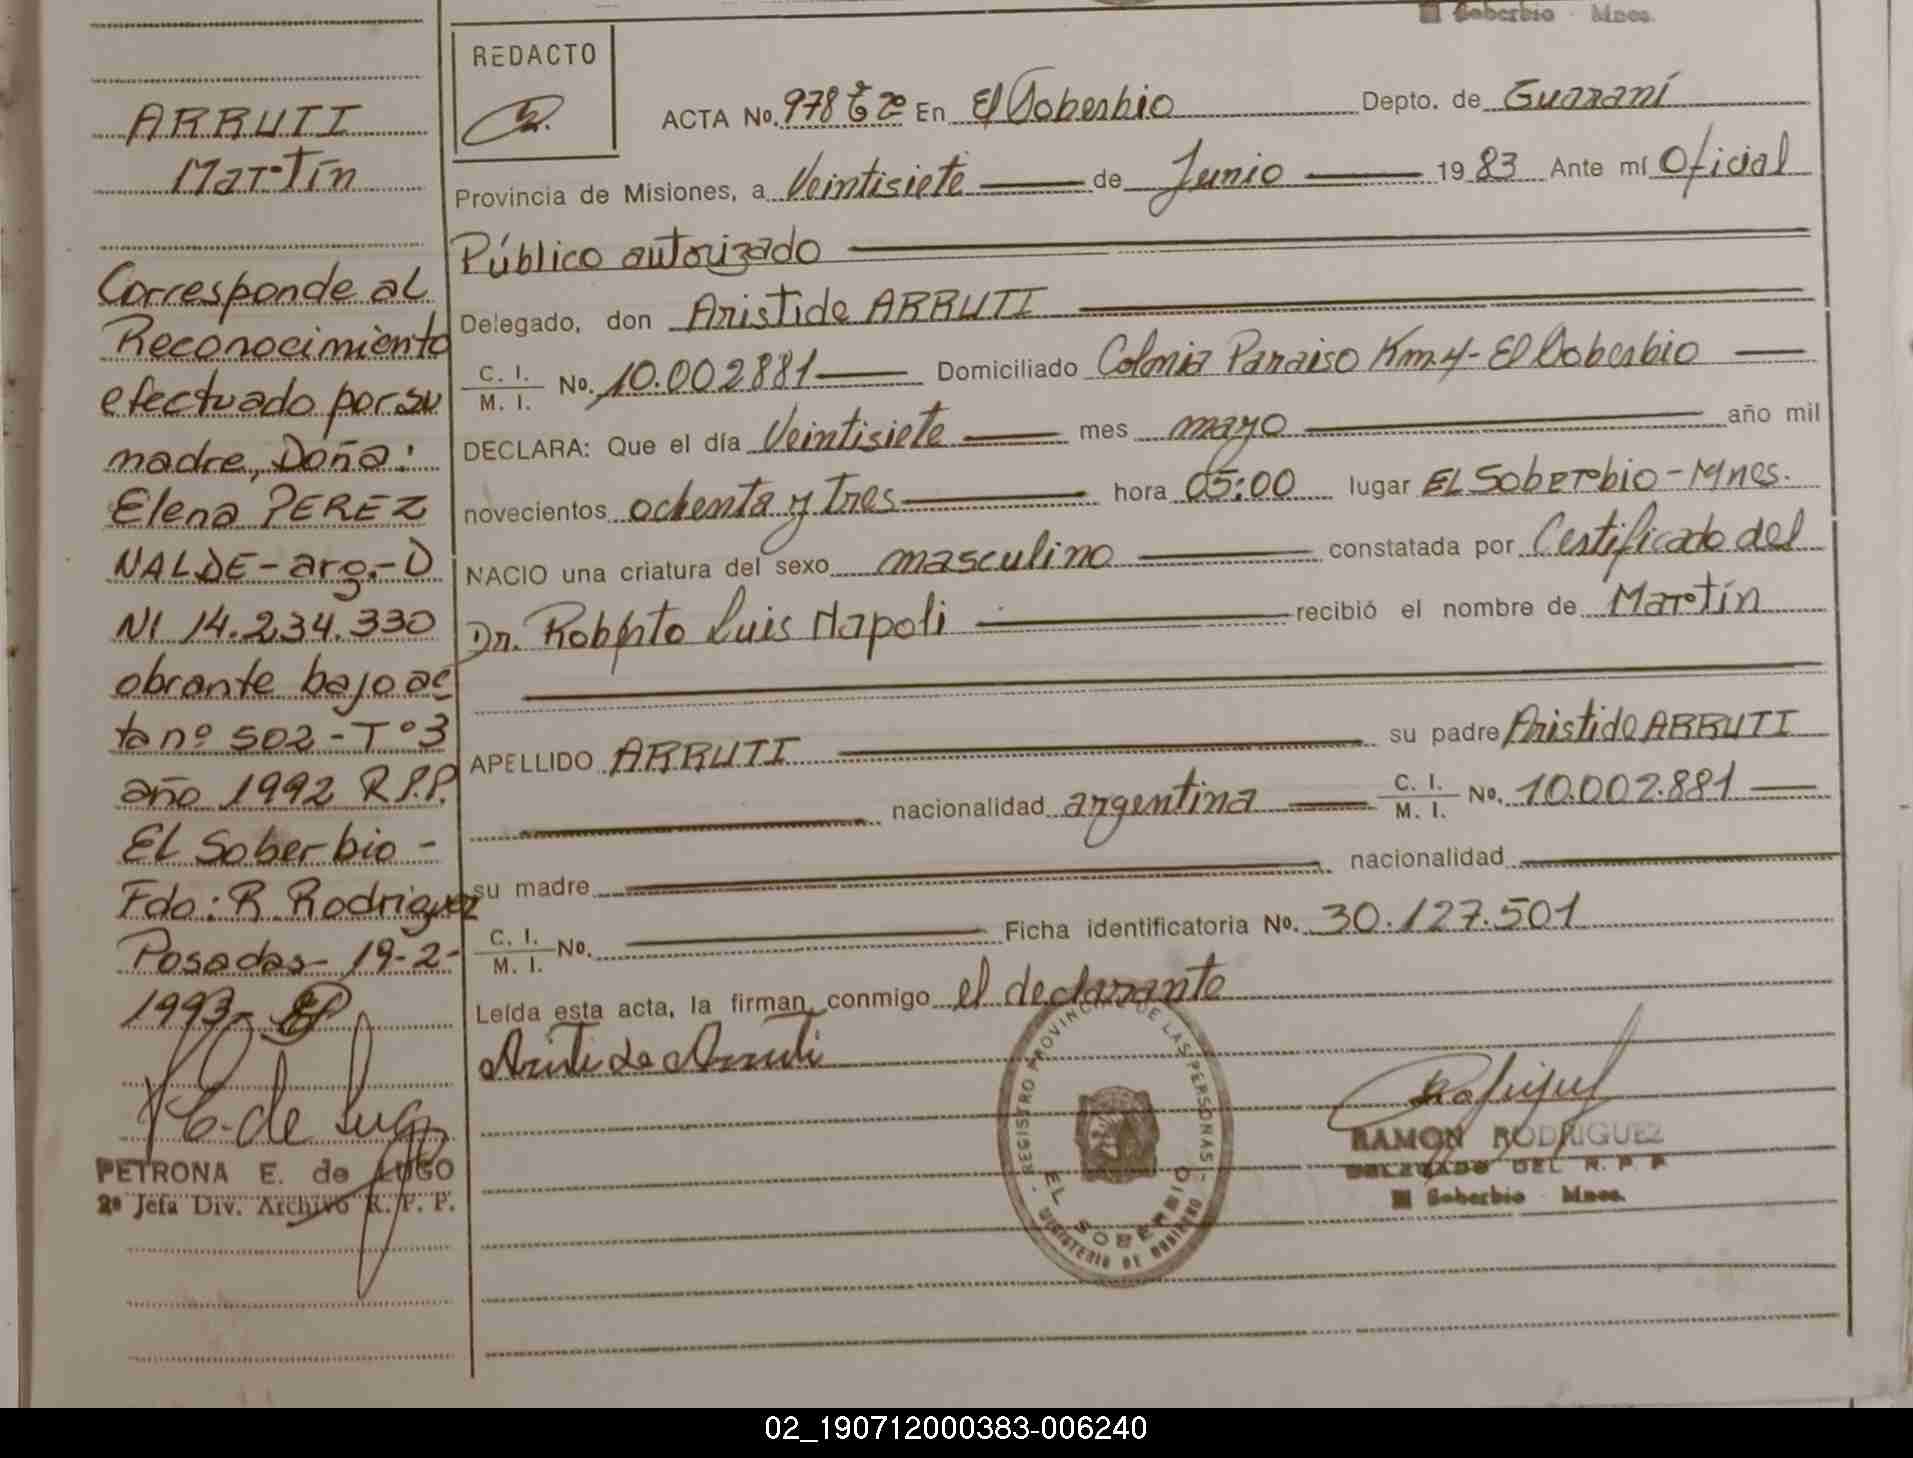 El Soberbio - Mnes.
REDACTO
ACTA No. 978 Tº 2º En El Soberbio Depto. de Guaraní
Provincia de Misiones, a Veintisiete de Junio 1983 Ante mí Oficial
Público autorizado
Delegado, don Aristide ARRUTI
C. I.
M. I. No. 10.002881 Domiciliado Colonia Paraiso Km.4- El Soberbio
DECLARA: Que el día Veintisiete mes mayo año mil
novecientos ochenta y tres hora 05:00 lugar EL Soberbio - Mnes.
NACIO una criatura del sexo masculino constatada por Certificado del
Dr. Roberto Luis Napoli recibió el nombre de Martín
APELLIDO ARRUTI su padre Aristide ARRUTI
nacionalidad argentina C. I.
M. I. No. 10.002.881
su madre nacionalidad
C. I.
M. I. No. Ficha identificatoria No. 30.127.501
Leída esta acta, la firman conmigo el declarante
Aristide Arruti
REGISTRO PROVINCIAL DE LAS PERSONAS
EL SOBERBIO
MINISTERIO DE GOBIERNO
RAMON RODRIGUEZ
DELEGADO DEL R. P. P.
El Soberbio - Mnes.
ARRUTI
Martín
Corresponde al
Reconocimiento
efectuado por su
madre, Doña:
Elena PEREZ
NALDE - arg.- D
NI 14.234.330
obrante bajo ac
ta nº 502 - Tº 3
año 1992 R.P.P.
El Soberbio -
Fdo: R. Rodriguez
Posadas - 19-2-
1993-
E. de Lugo
PETRONA E. de LUGO
2ª Jefa Div. Archivo R. P. P.
02_190712000383-006240